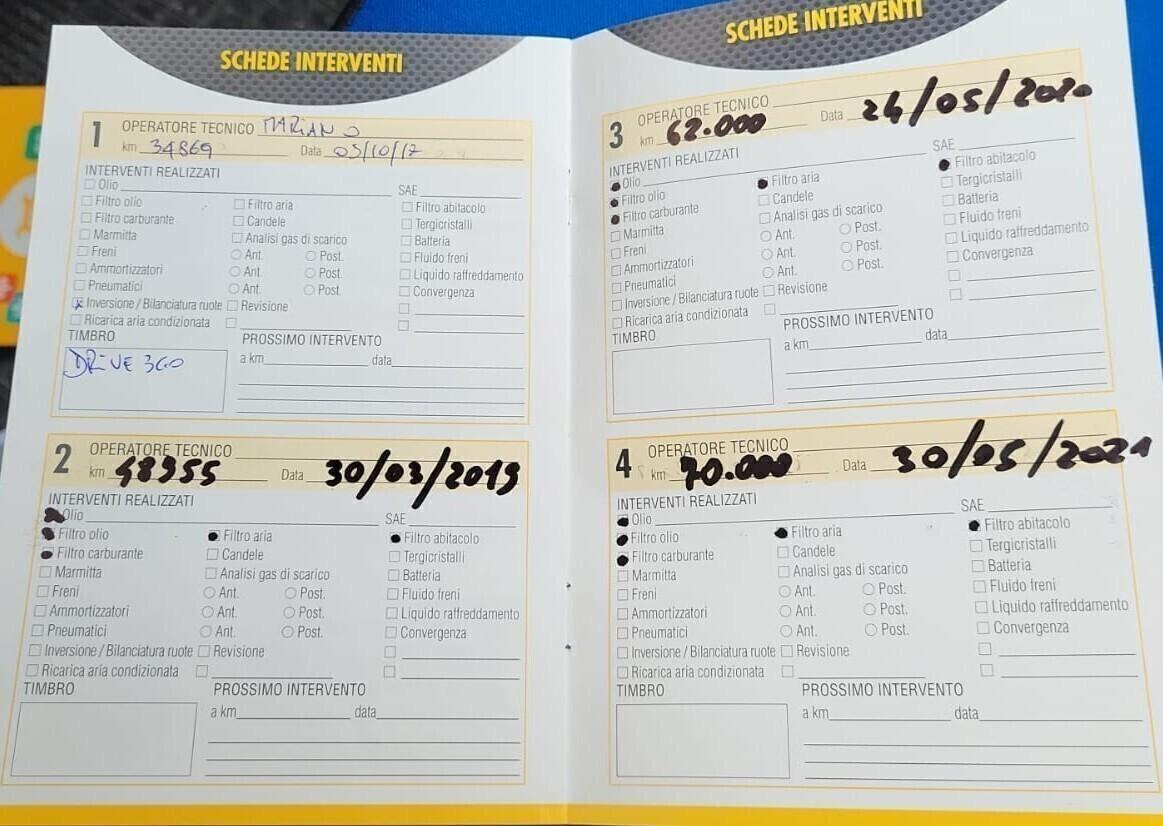 SCHEDE INTERVENTI
1 OPERATORE TECNICO MARIANO
km 34869 Data 05/10/17
INTERVENTI REALIZZATI
Olio SAE
Filtro olio Filtro aria Filtro abitacolo
Filtro carburante Candele Tergicristalli
Marmitta Analisi gas di scarico Batteria
Freni Ant. Post. Fluido freni
Ammortizzatori Ant. Post. Liquido raffreddamento
Pneumatici Ant. Post. Convergenza
x Inversione / Bilanciatura ruote Revisione
Ricarica aria condizionata
TIMBRO PROSSIMO INTERVENTO
DRIVE 360 a km data
2 OPERATORE TECNICO
km 48955 Data 30/03/2019
INTERVENTI REALIZZATI
Olio SAE
Filtro olio Filtro aria Filtro abitacolo
Filtro carburante Candele Tergicristalli
Marmitta Analisi gas di scarico Batteria
Freni Ant. Post. Fluido freni
Ammortizzatori Ant. Post. Liquido raffreddamento
Pneumatici Ant. Post. Convergenza
Inversione / Bilanciatura ruote Revisione
Ricarica aria condizionata
TIMBRO PROSSIMO INTERVENTO
a km data
SCHEDE INTERVENTI
3 OPERATORE TECNICO
km 62.000 Data 24/05/2020
INTERVENTI REALIZZATI
Olio SAE
Filtro olio Filtro aria Filtro abitacolo
Filtro carburante Candele Tergicristalli
Marmitta Analisi gas di scarico Batteria
Freni Ant. Post. Fluido freni
Ammortizzatori Ant. Post. Liquido raffreddamento
Pneumatici Ant. Post. Convergenza
Inversione / Bilanciatura ruote Revisione
Ricarica aria condizionata
TIMBRO PROSSIMO INTERVENTO
a km data
4 OPERATORE TECNICO
km 70.000 Data 30/05/2021
INTERVENTI REALIZZATI
Olio SAE
Filtro olio Filtro aria Filtro abitacolo
Filtro carburante Candele Tergicristalli
Marmitta Analisi gas di scarico Batteria
Freni Ant. Post. Fluido freni
Ammortizzatori Ant. Post. Liquido raffreddamento
Pneumatici Ant. Post. Convergenza
Inversione / Bilanciatura ruote Revisione
Ricarica aria condizionata
TIMBRO PROSSIMO INTERVENTO
a km data